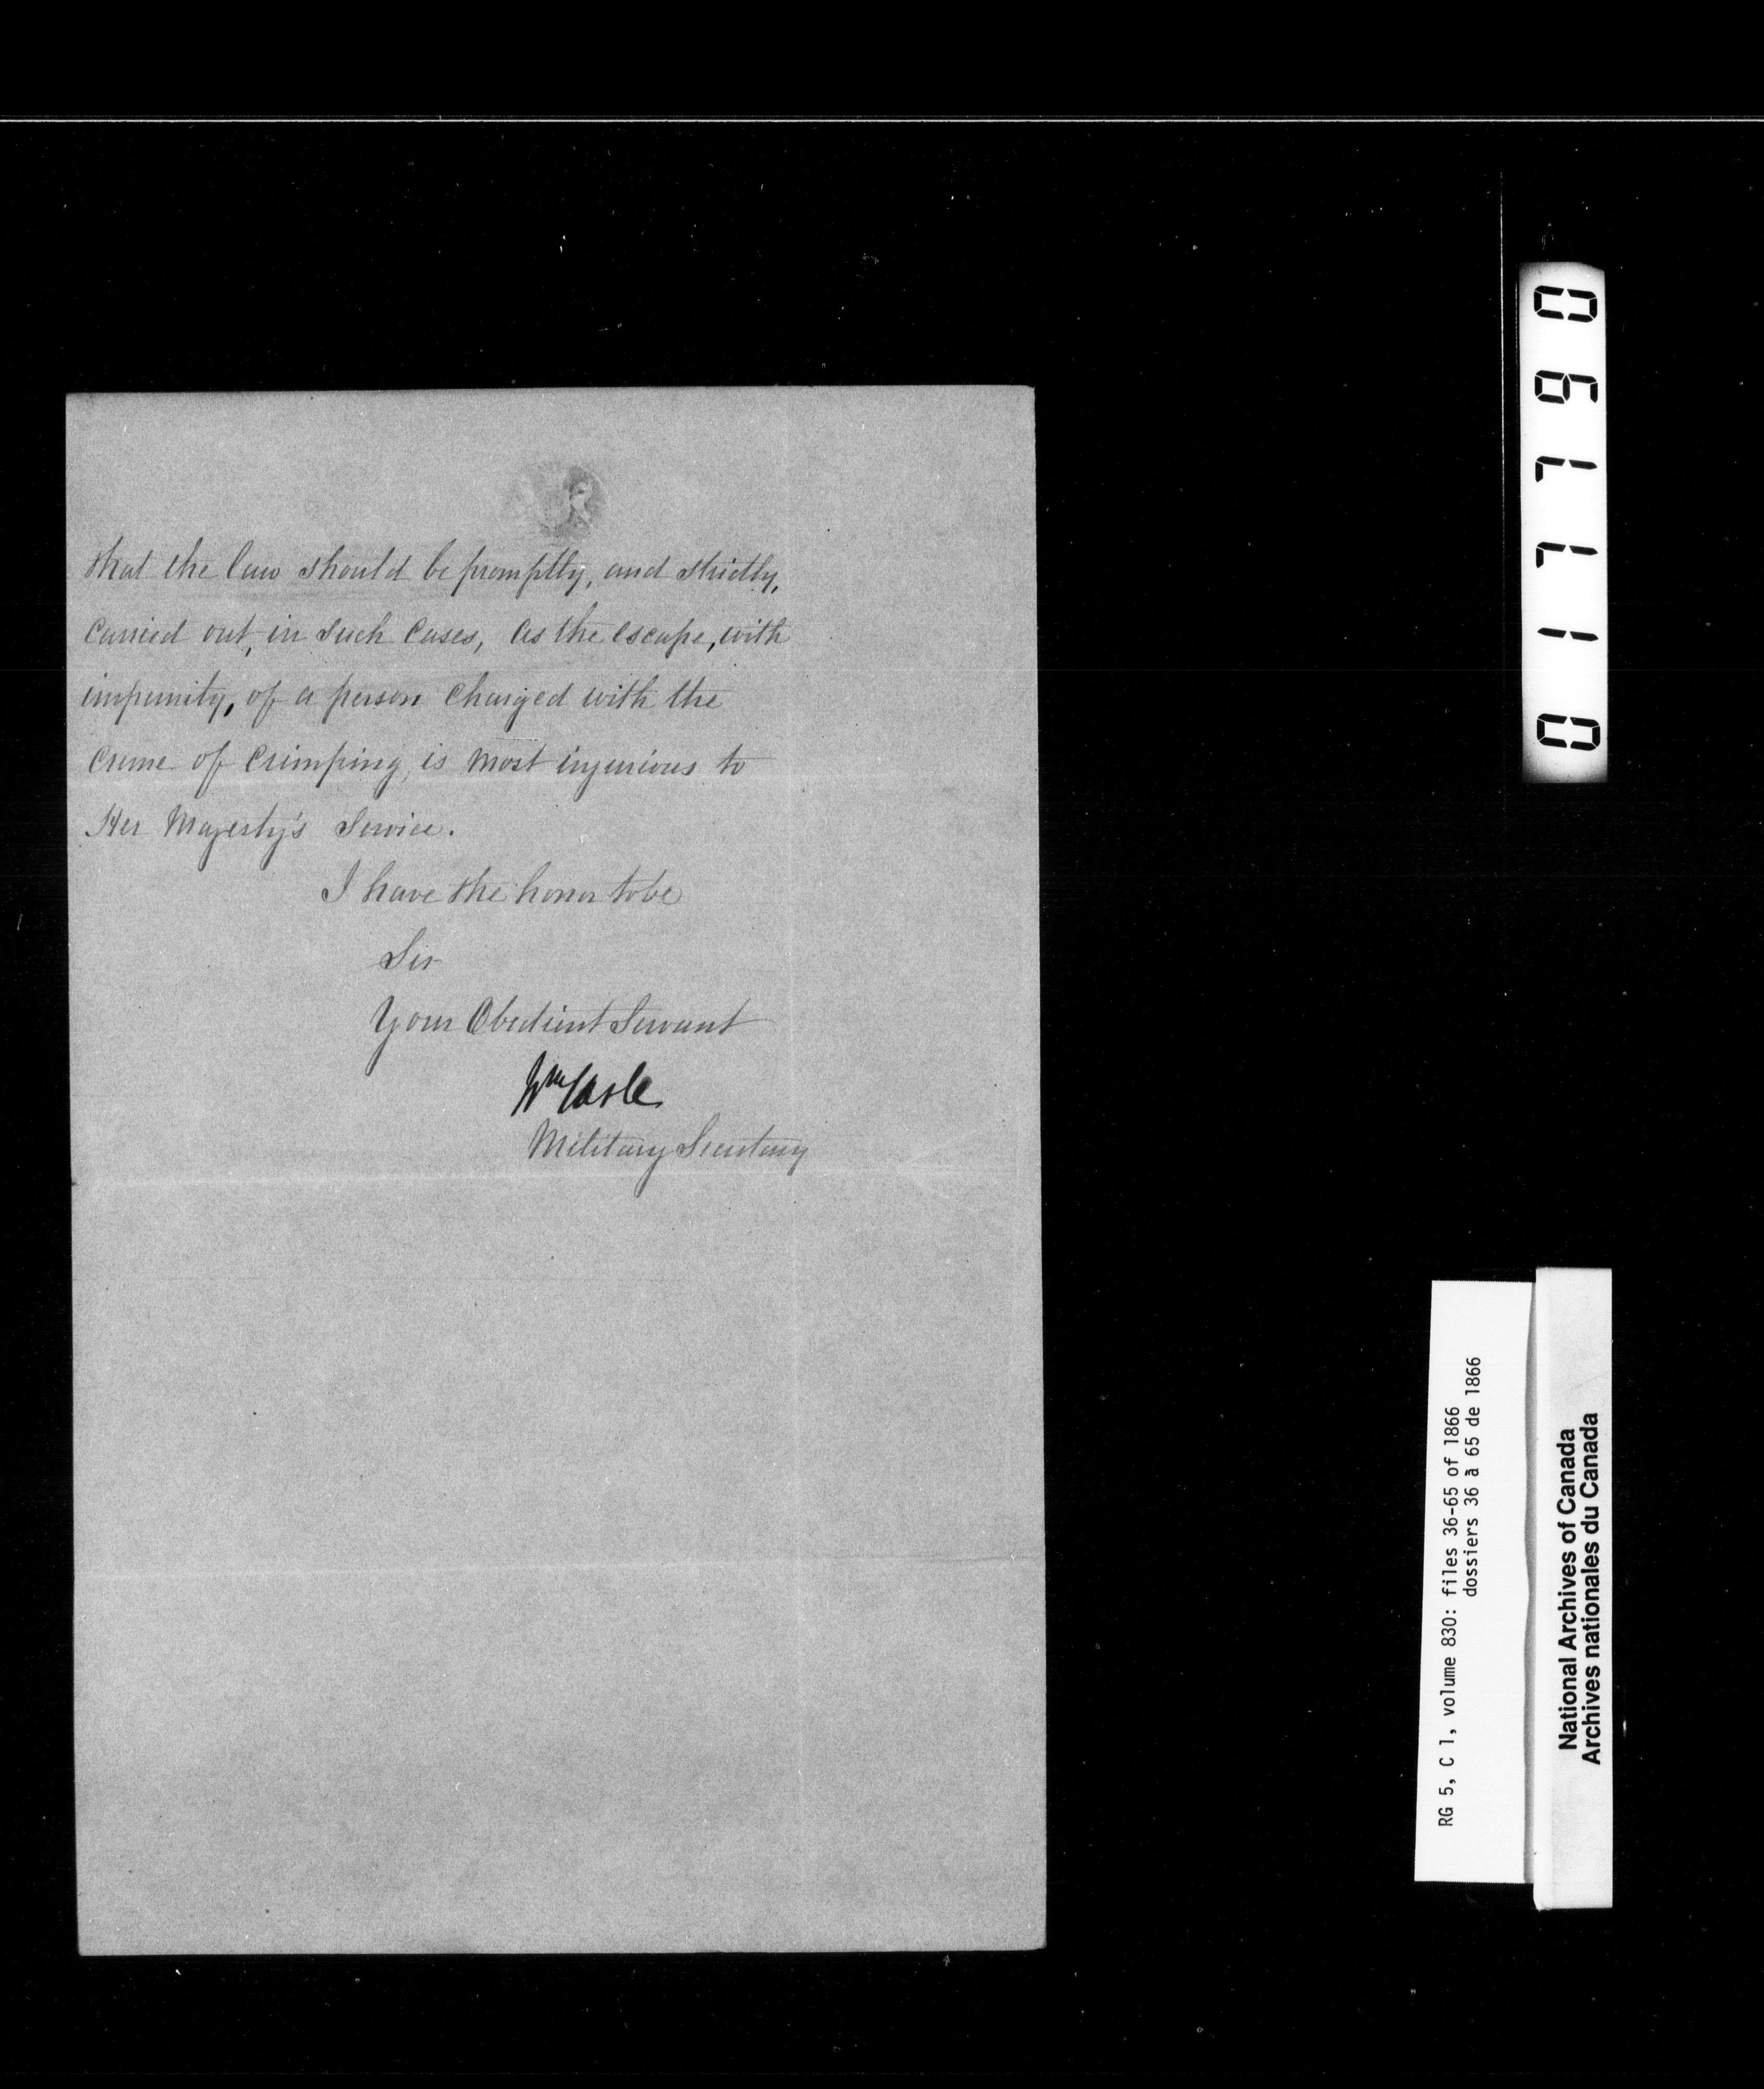 that the law should be promptly, and strictly,
carried out, in such cases, as the escape, with
impunity, of a person charged with the
crime of crimping, is most injurious to
Her Majesty's Service.
I have the honor to be
Sir
Your Obedient Servant
Wm Earle
Military Secretary
017790
RG 5, C 1, volume 830: files 36-65 of 1866
dossiers 36 à 65 de 1866
National Archives of Canada
Archives nationales du Canada